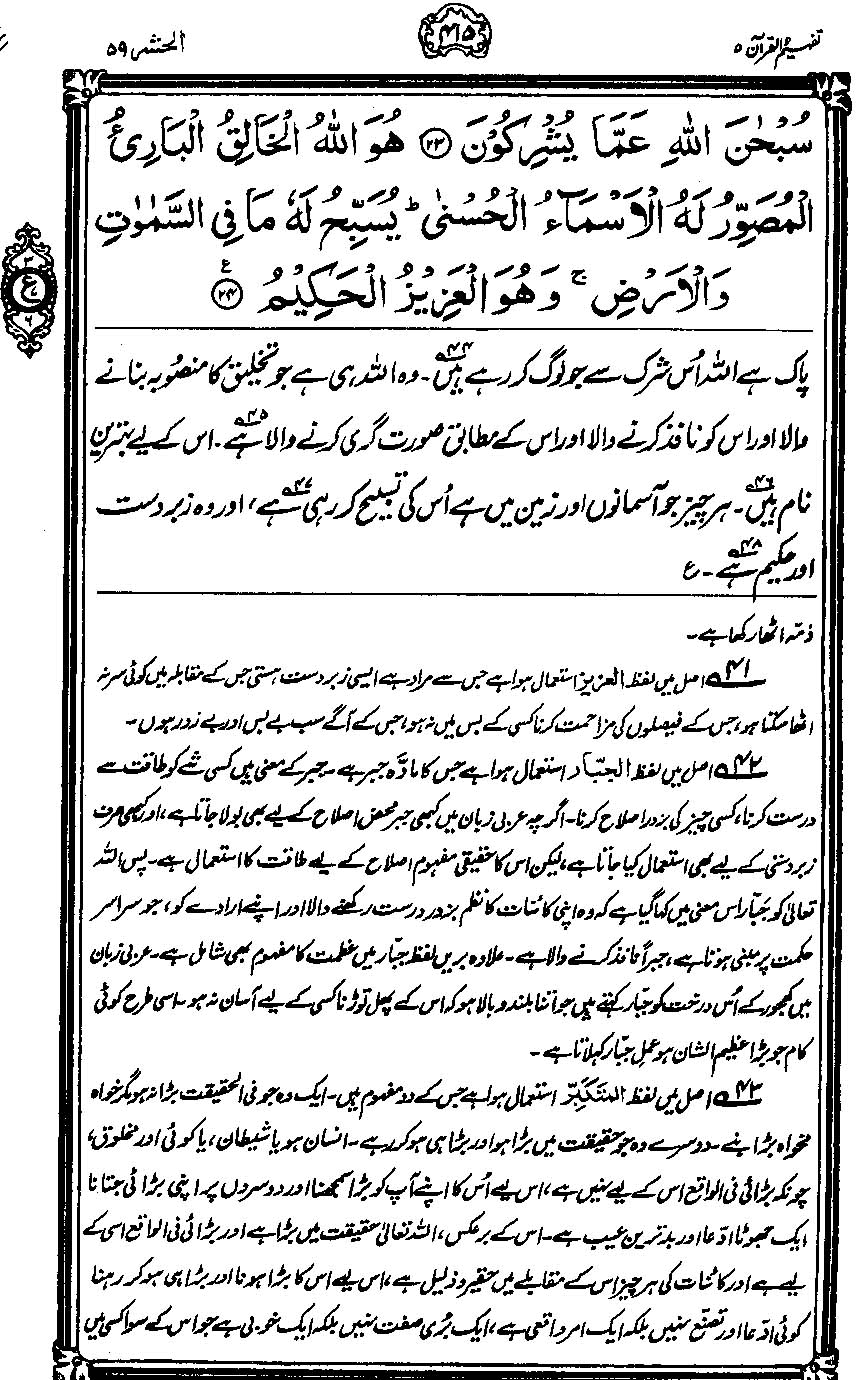 تفہیم القرآن ۵
۴۱۵
الحشر ۵۹
سُبْحٰنَ اللهِ عَمَّا يُشْرِكُوْنَ ﴿۲۳﴾ هُوَ اللهُ الْخَالِقُ الْبَارِئُ
الْمُصَوِّرُ لَهُ الْاَسْمَآءُ الْحُسْنٰى ؕ يُسَبِّحُ لَهٗ مَا فِي السَّمٰوٰتِ
وَالْاَرْضِ ۚ وَهُوَ الْعَزِيْزُ الْحَكِيْمُ ﴿۲۴﴾ ع
۳
ع
۶
پاک ہے اللہ اُس شرک سے جو لوگ کر رہے ہیں۴۴۔ وہ اللہ ہی ہے جو تخلیق کا منصوبہ بنانے
والا اور اس کو نافذ کرنے والا اور اس کے مطابق صورت گری کرنے والا ہے۴۵۔ اس کے لیے بہترین
نام ہیں۴۶۔ ہر چیز جو آسمانوں اور زمین میں ہے اُس کی تسبیح کر رہی ہے۴۷، اور وہ زبردست
اور حکیم ہے۴۸۔ ع
ذمّہ اٹھا رکھا ہے۔
۴۱؎ اصل میں لفظ العزیز استعمال ہوا ہے جس سے مراد ہے ایسی زبردست ہستی جس کے مقابلہ میں کوئی سر نہ
اٹھا سکتا ہو، جس کے فیصلوں کی مزاحمت کرنا کسی کے بس میں نہ ہو، جس کے آگے سب بے بس اور بے زور ہوں۔
۴۲؎ اصل میں لفظ الجبّار استعمال ہوا ہے جس کا مادّہ جبر ہے۔ جبر کے معنی ہیں کسی شے کو طاقت سے
درست کرنا، کسی چیز کی بزور اصلاح کرنا۔ اگرچہ عربی زبان میں کبھی جبر محض اصلاح کے لیے بھی بولا جاتا ہے، اور کبھی صرف
زبردستی کے لیے بھی استعمال کیا جاتا ہے، لیکن اس کا حقیقی مفہوم اصلاح کے لیے طاقت کا استعمال ہے۔ پس اللہ
تعالیٰ کو جبّار اس معنی میں کہا گیا ہے کہ وہ اپنی کائنات کا نظم بزور درست رکھنے والا اور اپنے ارادے کو، جو سراسر
حکمت پر مبنی ہوتا ہے، جبراً نافذ کرنے والا ہے۔ علاوہ بریں لفظ جبّار میں عظمت کا مفہوم بھی شامل ہے۔ عربی زبان
میں کھجور کے اُس درخت کو جبّار کہتے ہیں جو اتنا بلند و بالا ہو کہ اس کے پھل توڑنا کسی کے لیے آسان نہ ہو۔ اسی طرح کوئی
کام جو بڑا عظیم الشان ہو عملِ جبّار کہلاتا ہے۔
۴۳؎ اصل میں لفظ المُتَكَبِّرُ استعمال ہوا ہے جس کے دو مفہوم ہیں۔ ایک وہ جو فی الحقیقت بڑا نہ ہو مگر خواہ
مخواہ بڑا بنے۔ دوسرے وہ جو حقیقت میں بڑا ہو اور بڑا ہی ہو کر رہے۔ انسان ہو یا شیطان، یا کوئی اور مخلوق،
چونکہ بڑائی فی الواقع اس کے لیے نہیں ہے، اس لیے اُس کا اپنے آپ کو بڑا سمجھنا اور دوسروں پر اپنی بڑائی جتانا
ایک جھوٹا ادّعا اور بدترین عیب ہے۔ اس کے برعکس، اللہ تعالیٰ حقیقت میں بڑا ہے اور بڑائی فی الواقع اسی کے
لیے ہے اور کائنات کی ہر چیز اس کے مقابلے میں حقیر و ذلیل ہے، اس لیے اس کا بڑا ہونا اور بڑا ہی ہو کر رہنا
کوئی ادّعا اور تصنّع نہیں بلکہ ایک امر واقعی ہے، ایک بُری صفت نہیں بلکہ ایک خوبی ہے جو اس کے سوا کسی میں